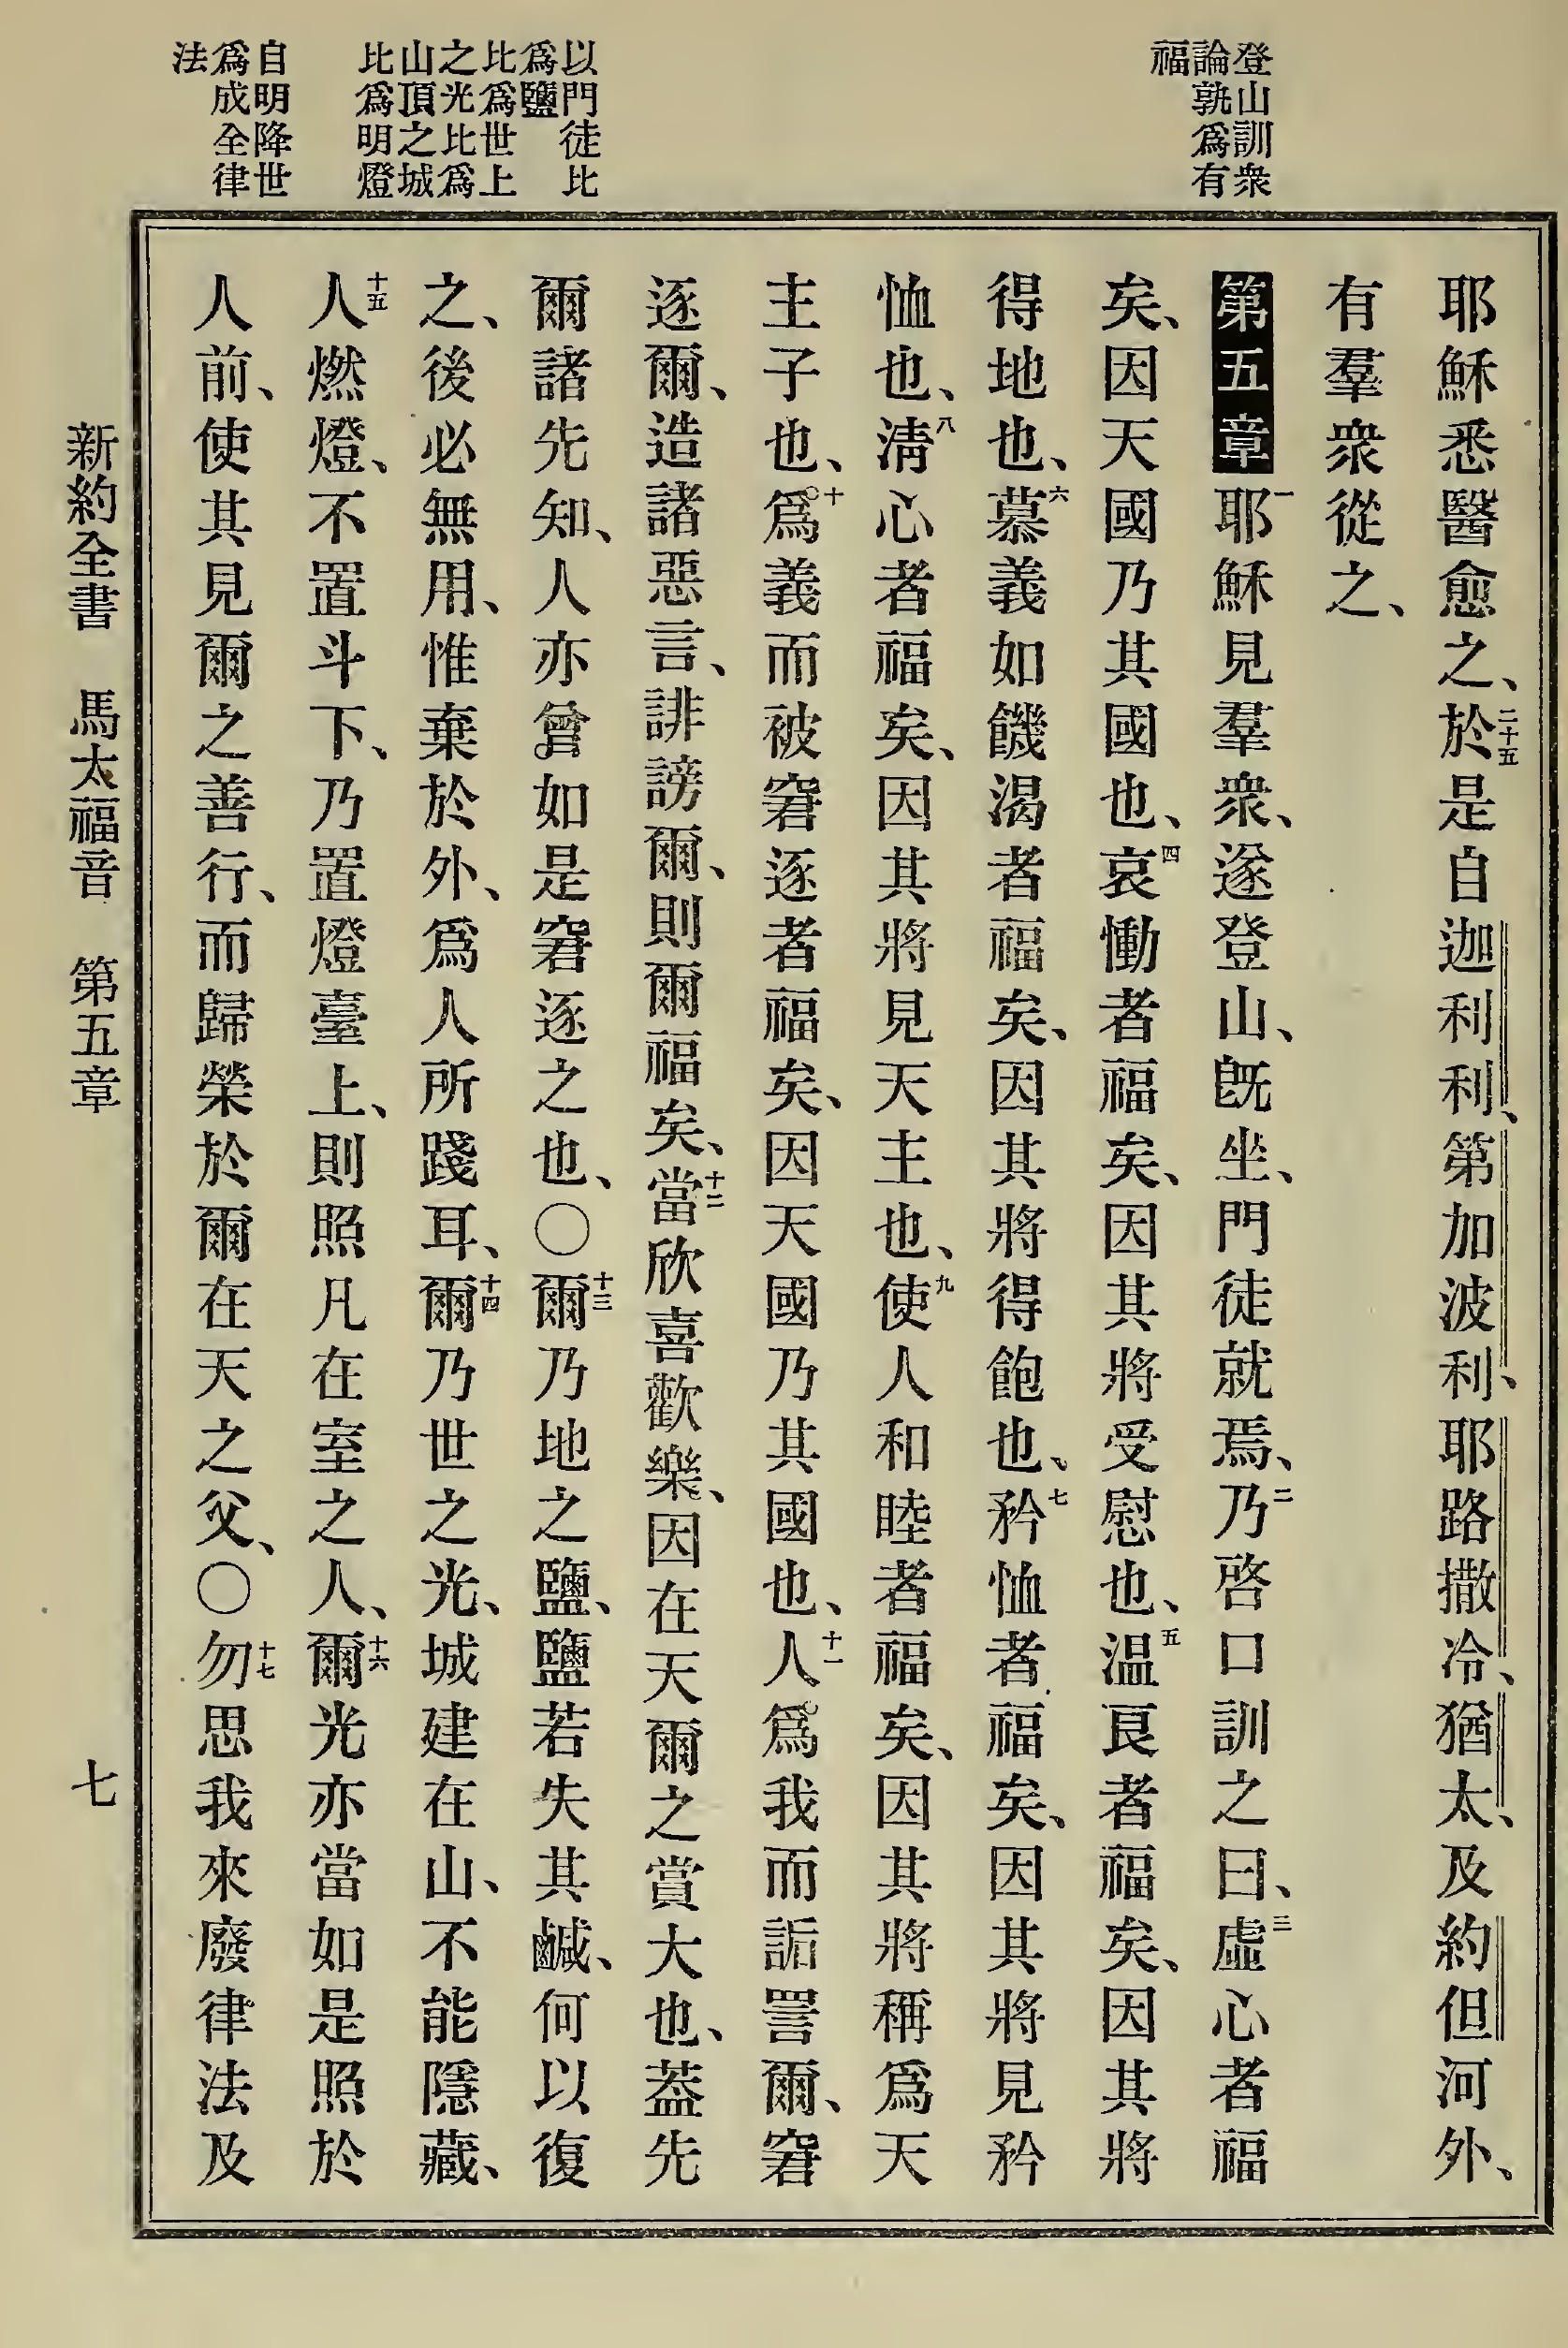 登山訓衆
論孰爲有
福
以門徒比
爲鹽
比爲世上
之光比爲
山頂之城
比爲明燈
自明降世
爲成全律
法
耶穌悉醫愈之、二十五於是自迦利利、第加波利、耶路撒冷、猶太、及約但河外、
有羣衆從之、
第五章一耶穌見羣衆、遂登山、旣坐、門徒就焉、二乃啓口訓之曰、三虛心者福
矣、因天國乃其國也、四哀慟者福矣、因其將受慰也、五温良者福矣、因其將
得地也、六慕義如饑渴者福矣、因其將得飽也、七矜恤者福矣、因其將見矜
恤也、八淸心者福矣、因其將見天主也、九使人和睦者福矣、因其將稱爲天
主子也、十爲義而被窘逐者福矣、因天國乃其國也、十一人爲我而詬詈爾、窘
逐爾、造諸惡言、誹謗爾、則爾福矣、十二當欣喜歡樂、因在天爾之賞大也、葢先
爾諸先知、人亦曾如是窘逐之也、〇十三爾乃地之鹽、鹽若失其鹹、何以復
之、後必無用、惟棄於外、爲人所踐耳、十四爾乃世之光、城建在山、不能隱藏、
十五人燃燈、不置斗下、乃置燈臺上、則照凡在室之人、十六爾光亦當如是照於
人前、使其見爾之善行、而歸榮於爾在天之父、〇十七勿思我來廢律法及
新約全書 馬太福音 第五章 七